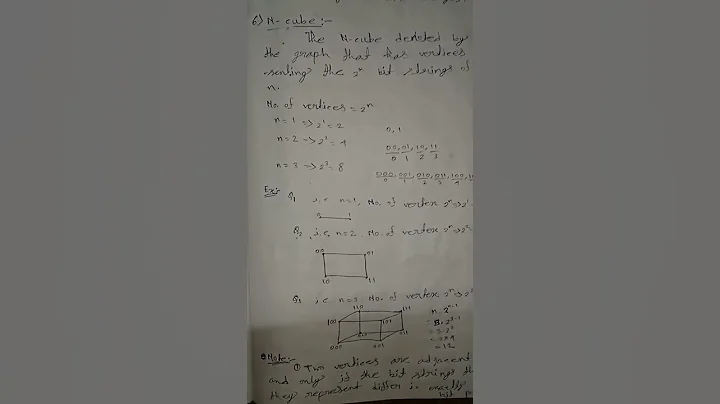 6) N-cube :-
The N-cube denoted by
the graph that has vertices
senting the 2ⁿ bit strings of
n.
No. of vertices = 2ⁿ
n=1 => 2¹ = 2
0, 1
n=2 => 2² = 4
00, 01, 10, 11
0 1 2 3
n=3 => 2³ = 8
000, 001, 010, 011, 100, 1
0 1 2 3 4
Ex:- Q₁ i.e n=1, No. of vertex 2ⁿ => 2¹
0 1
Q₂ i.e, n=2. No. of vertex 2ⁿ => 2²
00 01
10 11
Q₃ i.e n=3 No. of vertex 2ⁿ => 2³
110 111
100 101
010 011
000 001
n.2ⁿ⁻¹
= 3.2³⁻¹
= 3.2²
= 3×4
= 12
Note:-
① Two vertices are adjacent
and only if the bit strings th
they represent differ in exactly
bit p